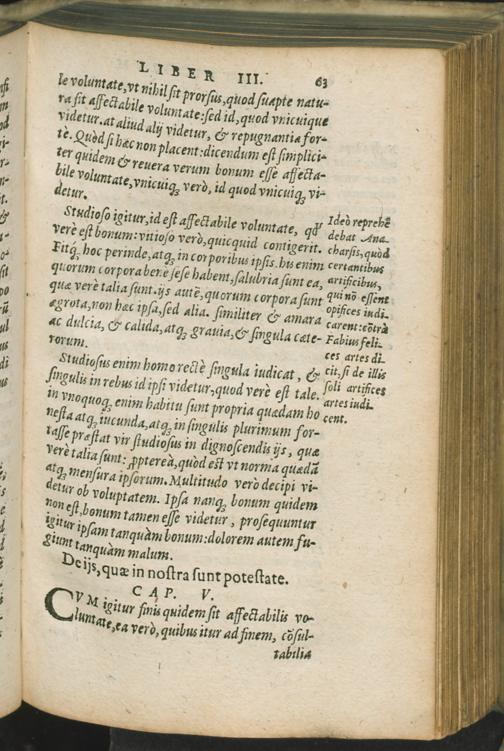 LIBER III. 63
le voluntate, vt nihil sit prorsus, quod suapte natu-
ra sit affectabile voluntate: sed id, quod vnicuique
videtur. at aliud alij videtur, & repugnantia for-
tè. Quòd si hæc non placent: dicendum est simplici-
ter quidem & reuera verum bonum esse affecta-
bile voluntate, vnicuiq; verò, id quod vnicuiq; vi-
detur.
Studioso igitur, id est affectabile voluntate, qđ
verè est bonum: vitioso verò, quicquid contigerit.
Fitq́; hoc perinde, atq; in corporibus ipsis. his enim
quorum corpora bene sese habent, salubria sunt ea,
quæ verè talia sunt. ijs autē, quorum corpora sunt
ægrota, non hæc ipsa, sed alia. similiter & amara
ac dulcia, & calida, atq; grauia, & singula cæte-
rorum.
Studiosus enim homo rectè singula iudicat, &
singulis in rebus id ipsi videtur, quod verè est tale.
in vnoquoq; enim habitu sunt propria quædam ho
nesta atq; iucunda, atq; in singulis plurimum for-
tasse præstat vir studiosus in dignoscendis ijs, quæ
verè talia sunt: ꝓpterea, quòd est vt norma quædā
atq; mensura ipsorum. Multitudo verò decipi vi-
detur ob voluptatem. Ipsa nanq; bonum quidem
non est, bonum tamen esse videtur, prosequuntur
igitur ipsam tanquàm bonum: dolorem autem fu-
giunt tanquàm malum.
Ideò reprehē
debat Ana-
charsis, quòd
certantibus
artificibus,
qui nō essent
opifices iudi-
carent: cōtrà
Fabius feli-
ces artes di-
cit, si de illis
soli artifices
artes iudi-
cent.
De ijs, quæ in nostra sunt potestate.
CAP. V.
CVM igitur finis quidem sit affectabilis vo-
luntate, ea verò, quibus itur ad finem, cōsul-
tabilia